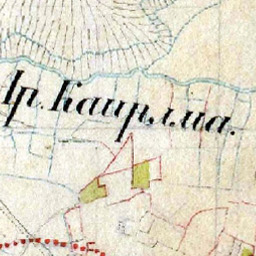 Ір. Каирлма.